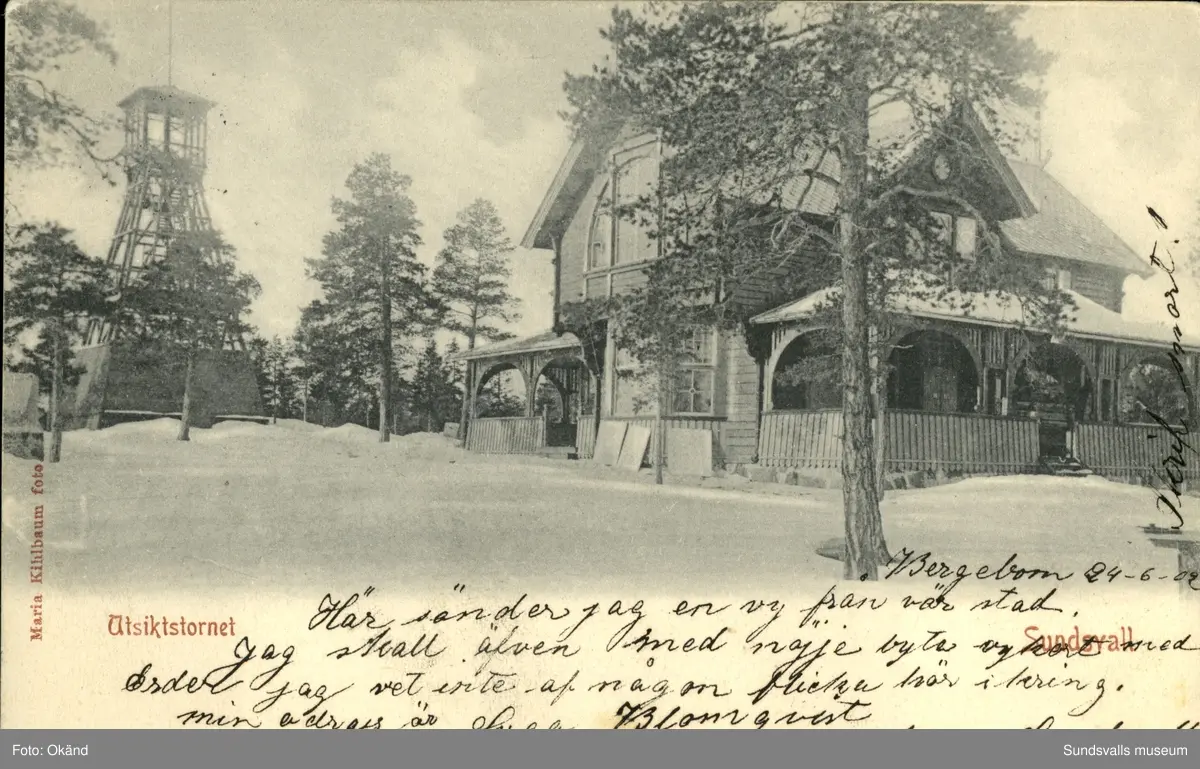 Skrif snart!
Bergebom 24-6-02
Här sänder jag en vy från vår stad.
Utsiktstornet
Sundsvall
Jag skall äfven med nöje byta vykort med
Erder jag vet inte af någon flicka här ikring.
min adrass är Blomqvist
Maria Kihlbaum foto
Foto: Okänd
Sundsvalls museum